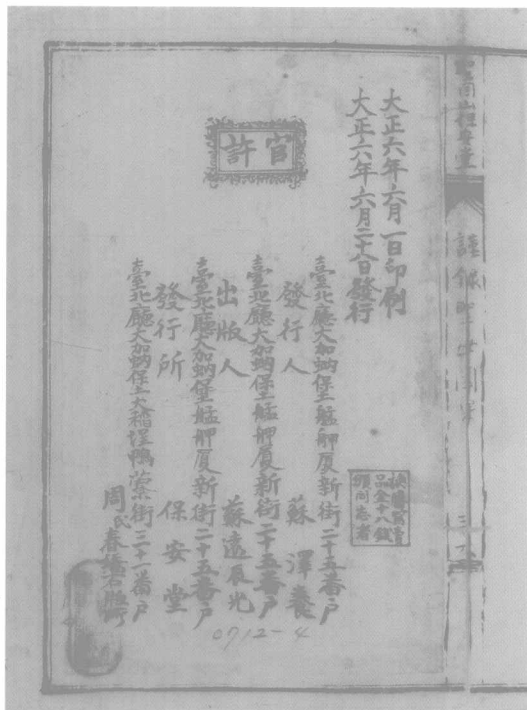 大正六年六月一日印刷
大正六年六月二十八日發行
官許
臺北廳大加蚋堡艋舺厦新街二十五番戶
發行人 蘇澤養
臺北廳大加蚋堡艋舺厦新街二十五番戶
出版人 蘇遠辰光
臺北廳大加蚋堡艋舺厦新街二十五番戶
發行所 保安堂
臺北廳大加蚋堡大稻埕鴨藔街三十一番戶
周氏春橋石版所
0712-4